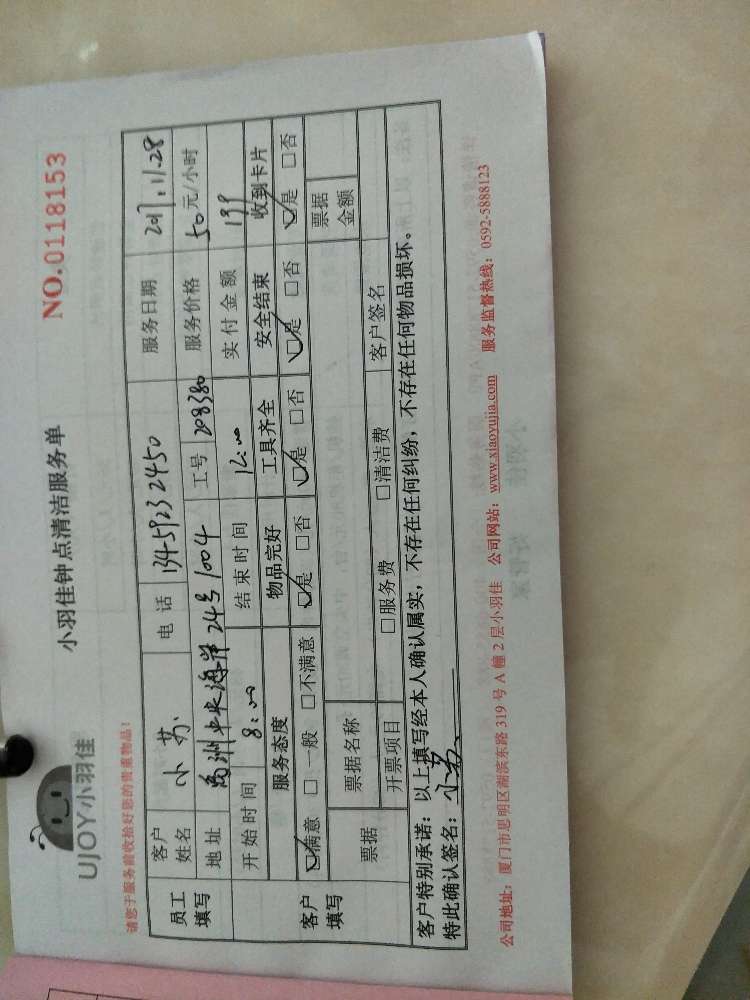 UJOY小羽佳
小羽佳钟点清洁服务单
NO.0118153
请您于服务前收拾好您的贵重物品!
员工填写 客户姓名 小苏 电话 13459232450 服务日期 2017.11.28
地址 禹洲中央海岸24号1004 工号 208380 服务价格 50元/小时
开始时间 8:00 结束时间 12:00 实付金额 199
客户填写 服务态度 物品完好 工具齐全 安全结束 收到卡片
☑满意 □一般 □不满意 ☑是 □否 ☑是 □否 ☑是 □否 ☑是 □否
票据 票据名称 票据金额
开票项目 □服务费 □清洁费 客户签名
客户特别承诺:以上填写经本人确认属实,不存在任何纠纷,不存在任何物品损坏。
特此确认签名:小苏
公司地址:厦门市思明区湖滨东路319号A幢2层小羽佳 公司网站:www.xiaoyujia.com 服务监督热线:0592-5888123